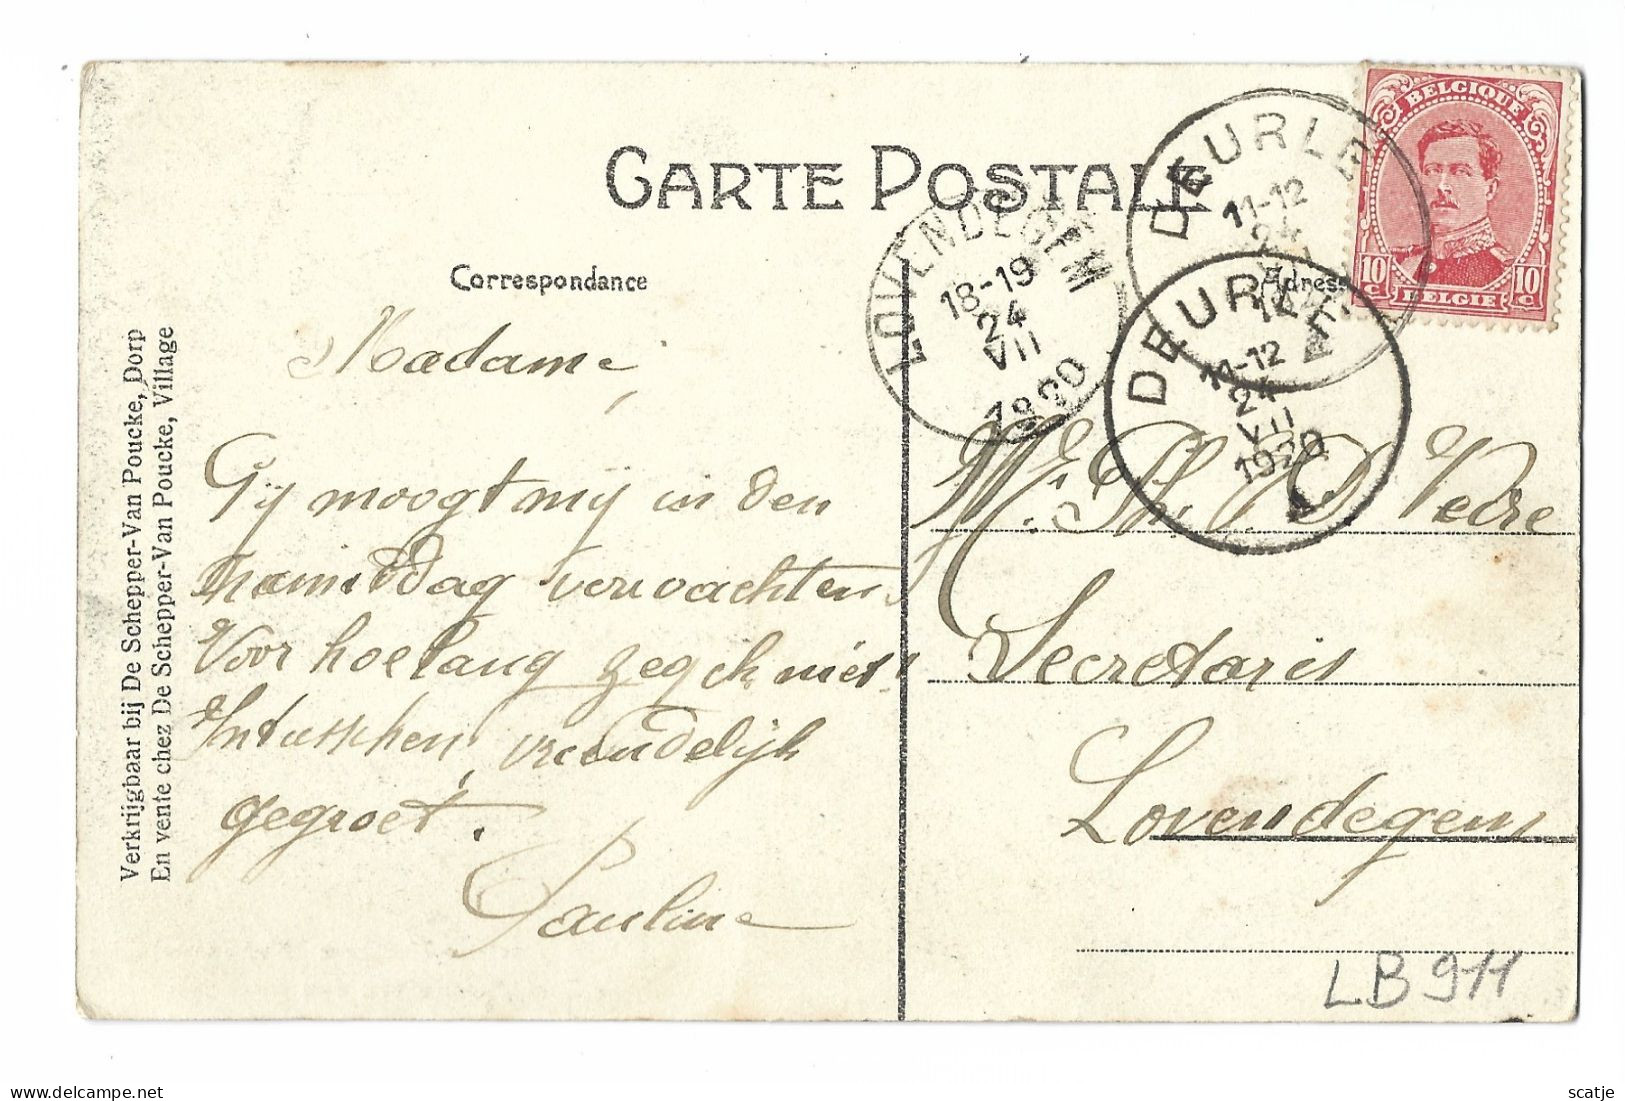 CARTE POSTALE
Correspondance
Adresse
BELGIQUE
10c 10c
BELGIE
DEURLE
11-12
24
DEURLE
11-12
24
VII
1920
A
LOVENDEGEM
18-19
24
VII
1920
Madame,
Gij moogt mij in den
namiddag verwachten.
Voor hoelang zeg ik niet!
Intusschen, vriendelijk
gegroet.
Pauline
Secretaris
Lovendegem
LB 911
Verkrijgbaar bij De Schepper-Van Poucke, Dorp
En vente chez De Schepper-Van Poucke, Village
scatje